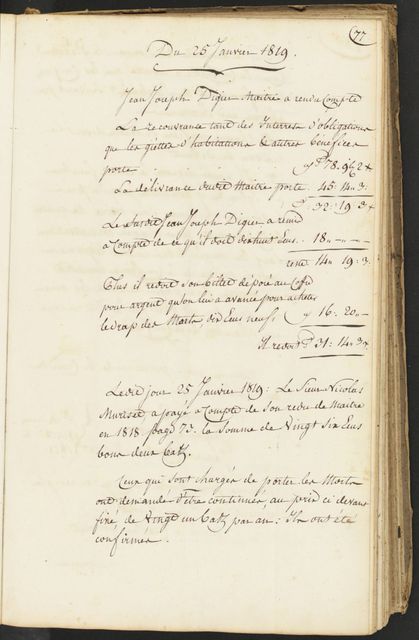 77
Du 25 Janvier 1819.
Jean Joseph Digier Maitre a rendu Compte
La recouvrance tant des Interrets d'obligations
que les giettes d'habitations & autres bénéfices
porte 78. 9
La délivrance dudit Maitre porte 45: 14: 3:
32: 19: 3
Le susdit Jean Joseph Digier a remis
a Compte de ce qu'il doit dixhuit Ecus. 18 — — —
reste 14: 19: 3
Plus il redoit son billet déposé au Cofre
pour argent qu'on lui a avancé pour acheter
le drap des Morts dix Ecus neufs 16: 20 —
Il redoit 31: 14: 3
Ledit jour 25 Janvier 1819: Le Sieur Nicolas
Muriset a payé a Compte de son redu de Maitre
en 1818 page 75: la somme de Vingt six Ecus
bons deux batz.
Ceux qui sont chargés de porter les Morts
ont demandé d'être continués, au prix ci devant
fixé de Vingt un batz par an: Ils ont été
confirmés.